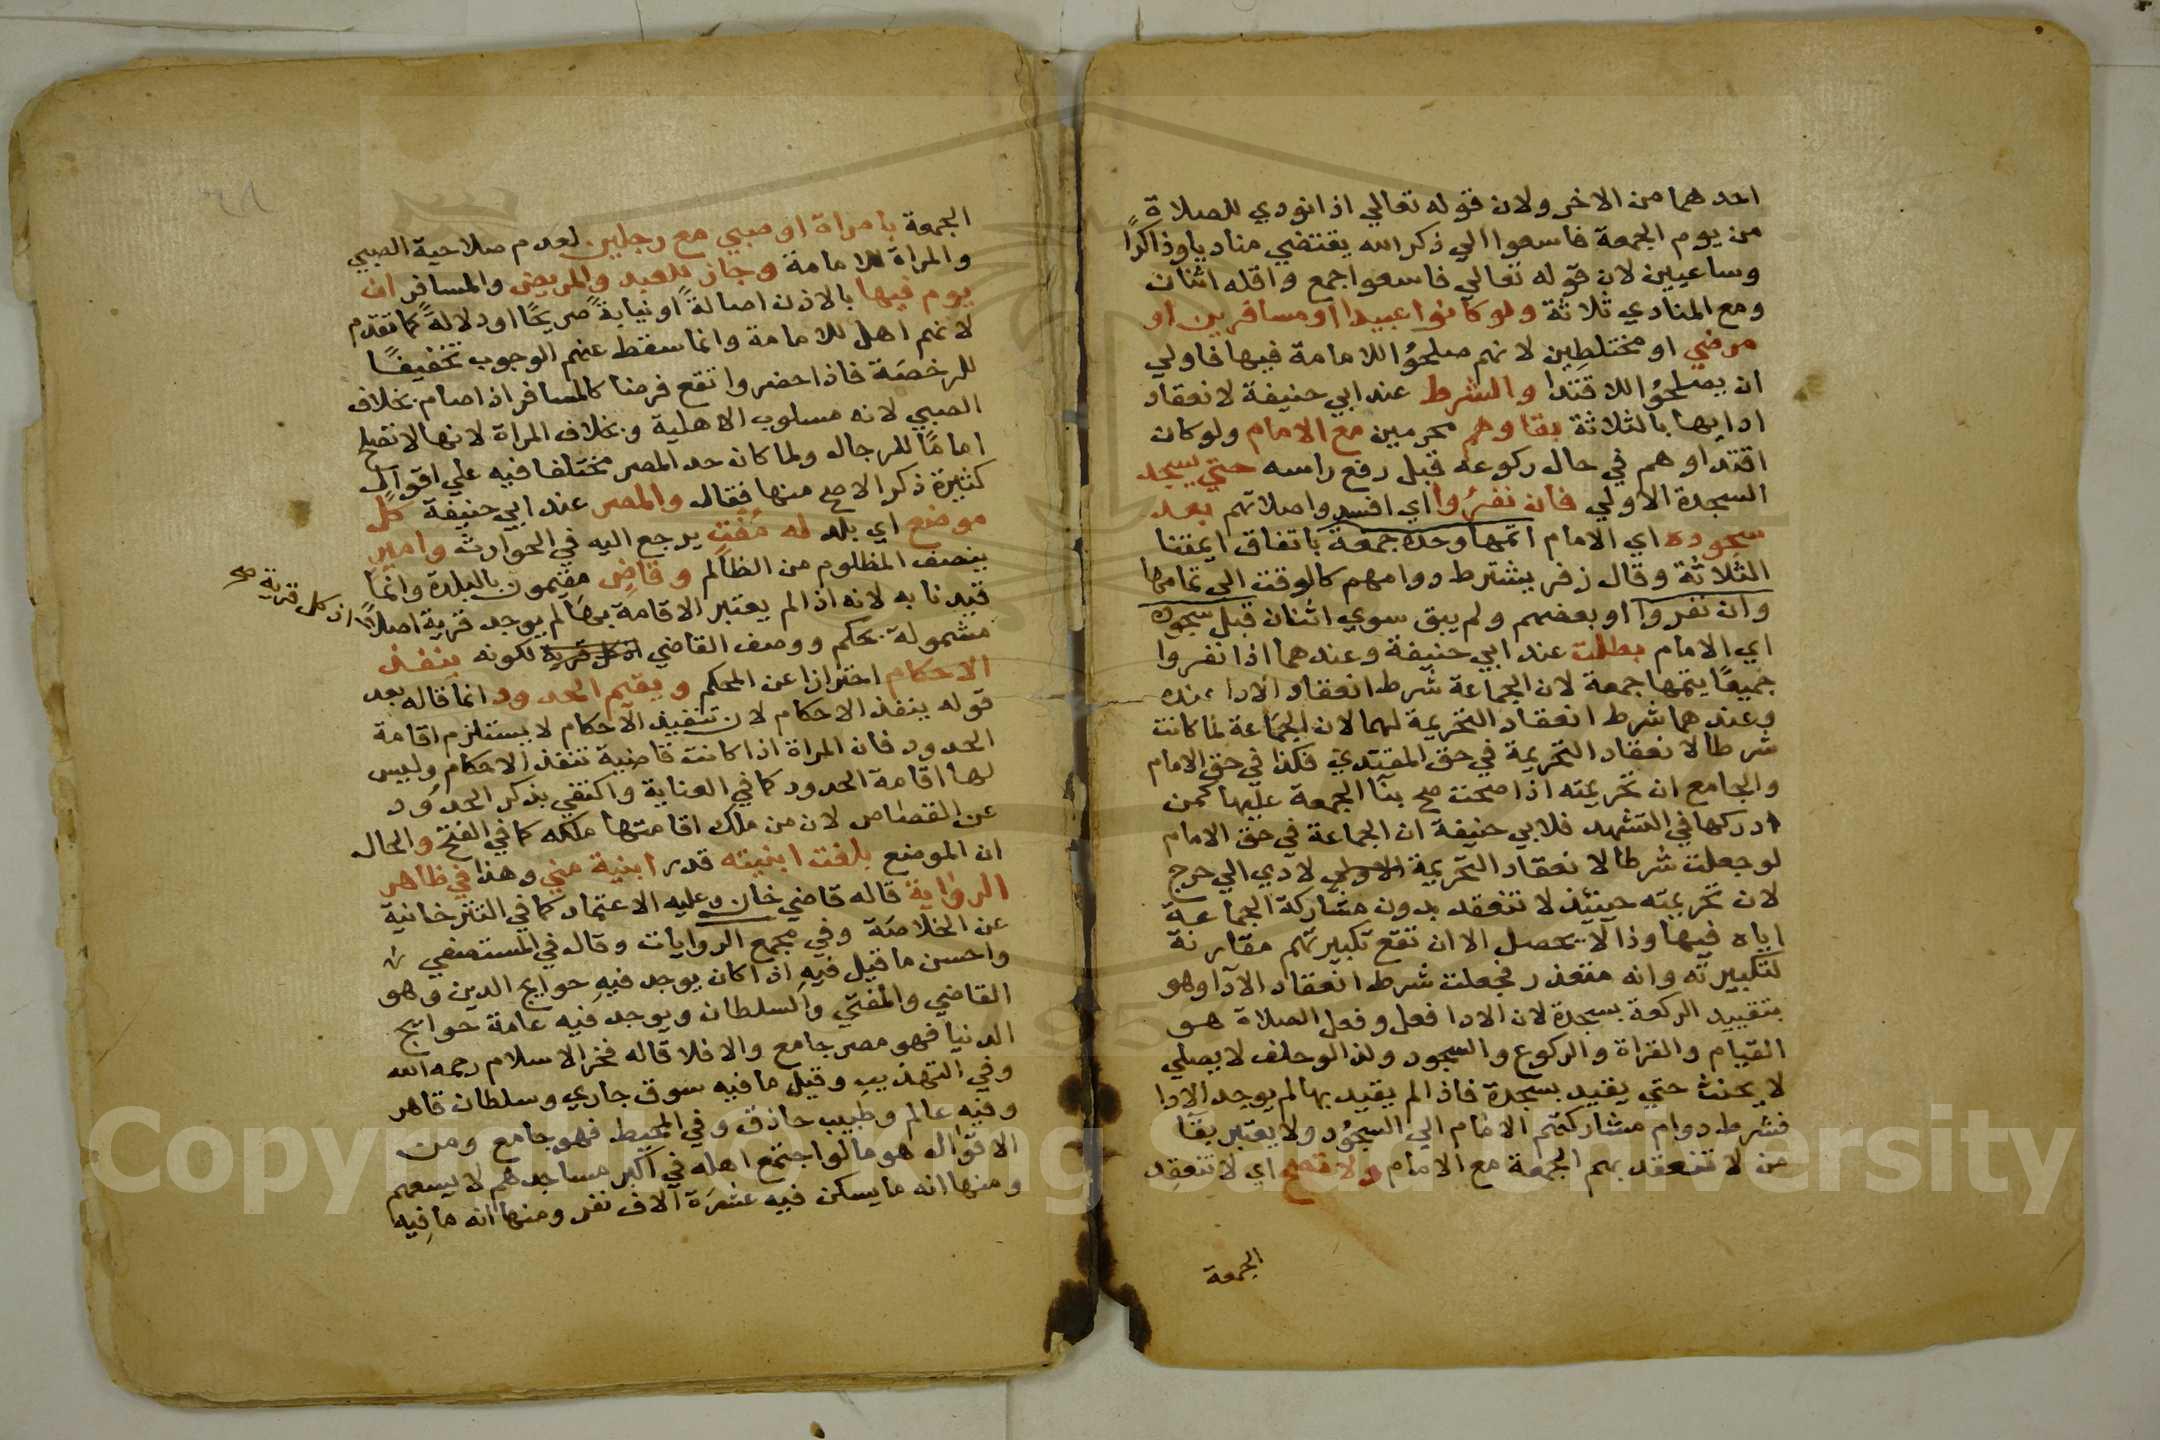 احدهما من الاخر ولان قوله تعالي اذا نودي للصلاة
من يوم الجمعة فاسعوا الي ذكر الله يقتضي مناديا وذاكرًا
وساعيين لان قوله تعالي فاسعوا جمع واقله اثنان
ومع المنادي ثلاثة ولو كانوا عبيدا او مسافرين او
مرضي او مختلطين لانهم صلحوا للامامة فيها فاولي
ان يصلحوا للاقتدا والشرط عند ابي حنيفة لانعقاد
ادايها بالثلاثة بقاوهم محرمين مع الامام ولو كان
اقتداوهم في حال ركوعه قبل رفع راسه حتي يسجد
السجدة الاولي فان نفروا اي افسدوا صلاتهم بعد
سجوده اي الامام اتمها وحده جمعة باتفاق ايمتنا
الثلاثة وقال زفر يشترط دوامهم كالوقت الي تمامها
وان نفروا او بعضهم ولم يبق سوي اثنان قبل سجوده
اي الامام بطلت عند ابي حنيفة وعندهما اذا نفروا
جميعًا يتمها جمعة لان الجماعة شرط انعقاد الادا عنده
وعندهما شرط انعقاد التحريمة لهما لان الجماعة لما كانت
شرطا لانعقاد التحريمة في حق المقتدي فكذا في حق الامام
والجامع ان تحريمته اذا صحت صح بنا الجمعة عليها كمن
ادركها في التشهد فلابي حنيفة ان الجماعة في حق الامام
لو جعلت شرطا لانعقاد التحريمة لادي الي حرج
لان تحريمته حينئذ لا تنعقد بدون مشاركة الجماعة
اياه فيها وذا لا يحصل الا ان تقع تكبيرتهم مقارنة
لتكبيرته وانه متعذر فجعلت شرط انعقاد الادا وهو
بتقييد الركعة بسجدة لان الادا فعل وفعل الصلاة هو
القيام والقراة والركوع والسجود ولذا لو حلف لا يصلي
لا يحنث حتي يقيد بسجدة فاذا لم يقيد بها لم يوجد الادا
فشرط دوام مشاركتهم الامام الي السجود ولا يعتبر بقا
من لا تنعقد بهم الجمعة مع الامام ولا تصح اي لا تنعقد
الجمعة
الجمعة بامراة او صبي مع رجلين لعدم صلاحية الصبي
والمراة للامامة وجاز للعبد والمريض والمسافر ان
يوم فيها بالاذن اصالةً او نيابةً صريحًا او دلالةً كما تقدم
لانهم اهل للامامة وانما سقط عنهم الوجوب تخفيفًا
للرخصة فاذا حضروا تقع فرضا كالمسافر اذا صام بخلاف
الصبي لانه مسلوب الاهلية وبخلاف المراة لانها لا تصلح
امامًا للرجال ولما كان حد المصر مختلفا فيه علي اقوال
كثيرة ذكر الاصح منها فقال والمصر عند ابي حنيفة كل
موضع اي بلد له مفت يرجع اليه في الحوادث وامير
ينصف المظلوم من الظالم وقاض مقيمون بالبلدة وانما
قيدنا به لانه اذا لم يعتبر الاقامة بها لم يوجد قرية اصلا
اذ كل قرية صح
مشمولة بحكم ووصف القاضي اذ كل قرية لكونه ينفذ
الاحكام احترازا عن المحكم ويقيم الحدود انما قاله بعد
قوله ينفذ الاحكام لان تنفيذ الاحكام لا يستلزم اقامة
الحدود فان المراة اذا كانت قاضية تنفذ الاحكام وليس
لها اقامة الحدود كما في العناية واكتفي بذكر الحدود
عن القصاص لان من ملك اقامتها ملكه كما في الفتح والحال
ان الموضع بلغت ابنيته قدر ابنية مني وهذا في ظاهر
الرواية قاله قاضي خان وعليه الاعتماد كما في التترخانية
عن الخلاصة وفي مجمع الروايات وقال في المستصفي
واحسن ما قيل فيه اذا كان يوجد فيه حوايج الدين وهو
القاضي والمفتي والسلطان ويوجد فيه عامة حوايج
الدنيا فهو مصر جامع والا فلا قاله فخر الاسلام رحمه الله
وفي التهذيب وقيل ما فيه سوق جاري وسلطان قاهر
وفيه عالم وطبيب حاذق وفي المحيط فهو جامع ومن
الاقوال هو ما لو اجتمع اهله في اكبر مساجدهم لا يسعهم
ومنها انه ما يسكن فيه عشرة الاف نفر ومنها انه ما فيه
Copyright © King Saud University